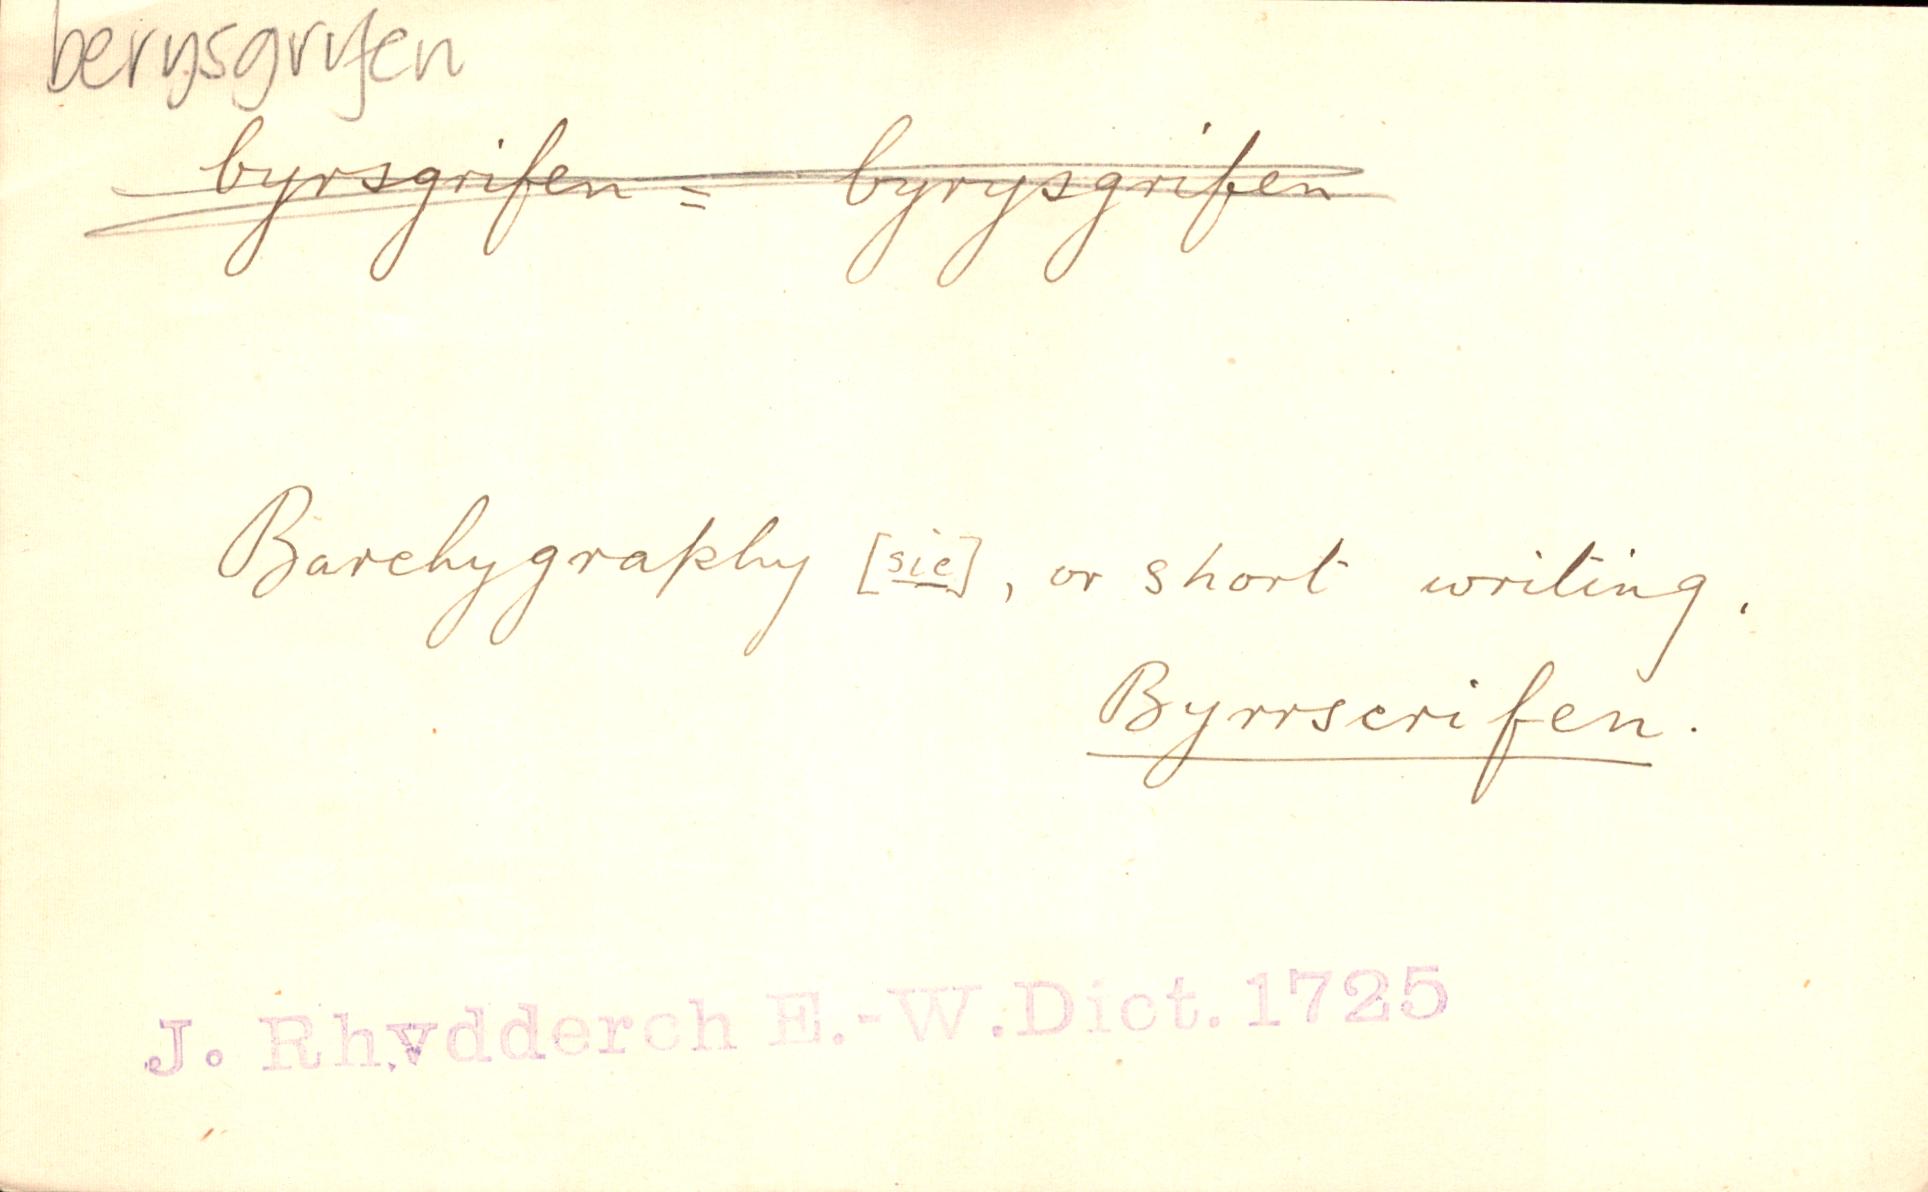 berysgrifen
byrsgrifen = byrysgrifen
Barchygraphy [sic], or short writing.
Byrrscrifen.
J. Rhydderch E.-W.Dict.1725